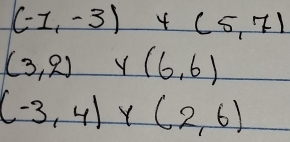 (-1, -3) y (5, 7)
(3,2) y (6,6)
(-3, 4) y (2, 6)